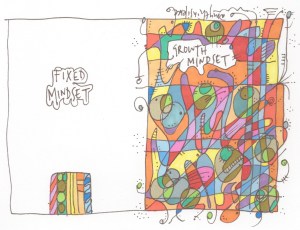 FIXED
MINDSET
GROWTH
MINDSET